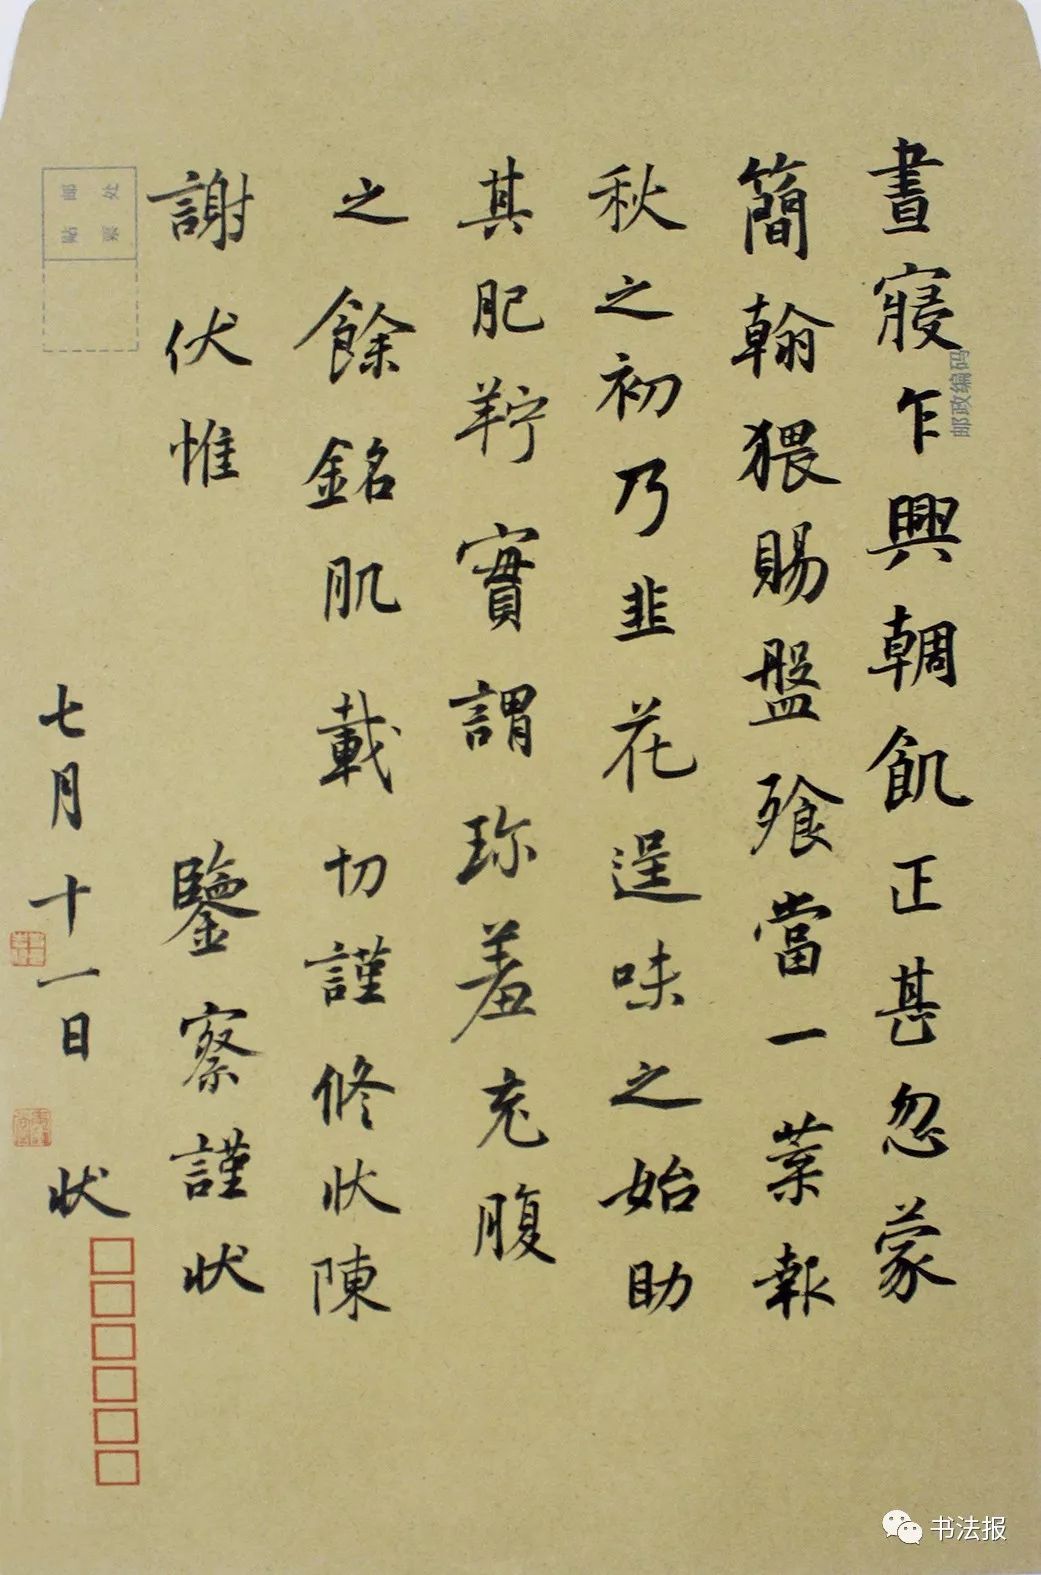 晝寢乍興輖飢正甚忽蒙
簡翰猥賜盤飱當一葉報
秋之初乃韭花逞味之始助
其肥羜實謂珎羞充腹
之餘銘肌載切謹修狀陳
謝伏惟 鑒察謹狀
七月十一日 狀
邮政编码
贴邮
票处
书法报